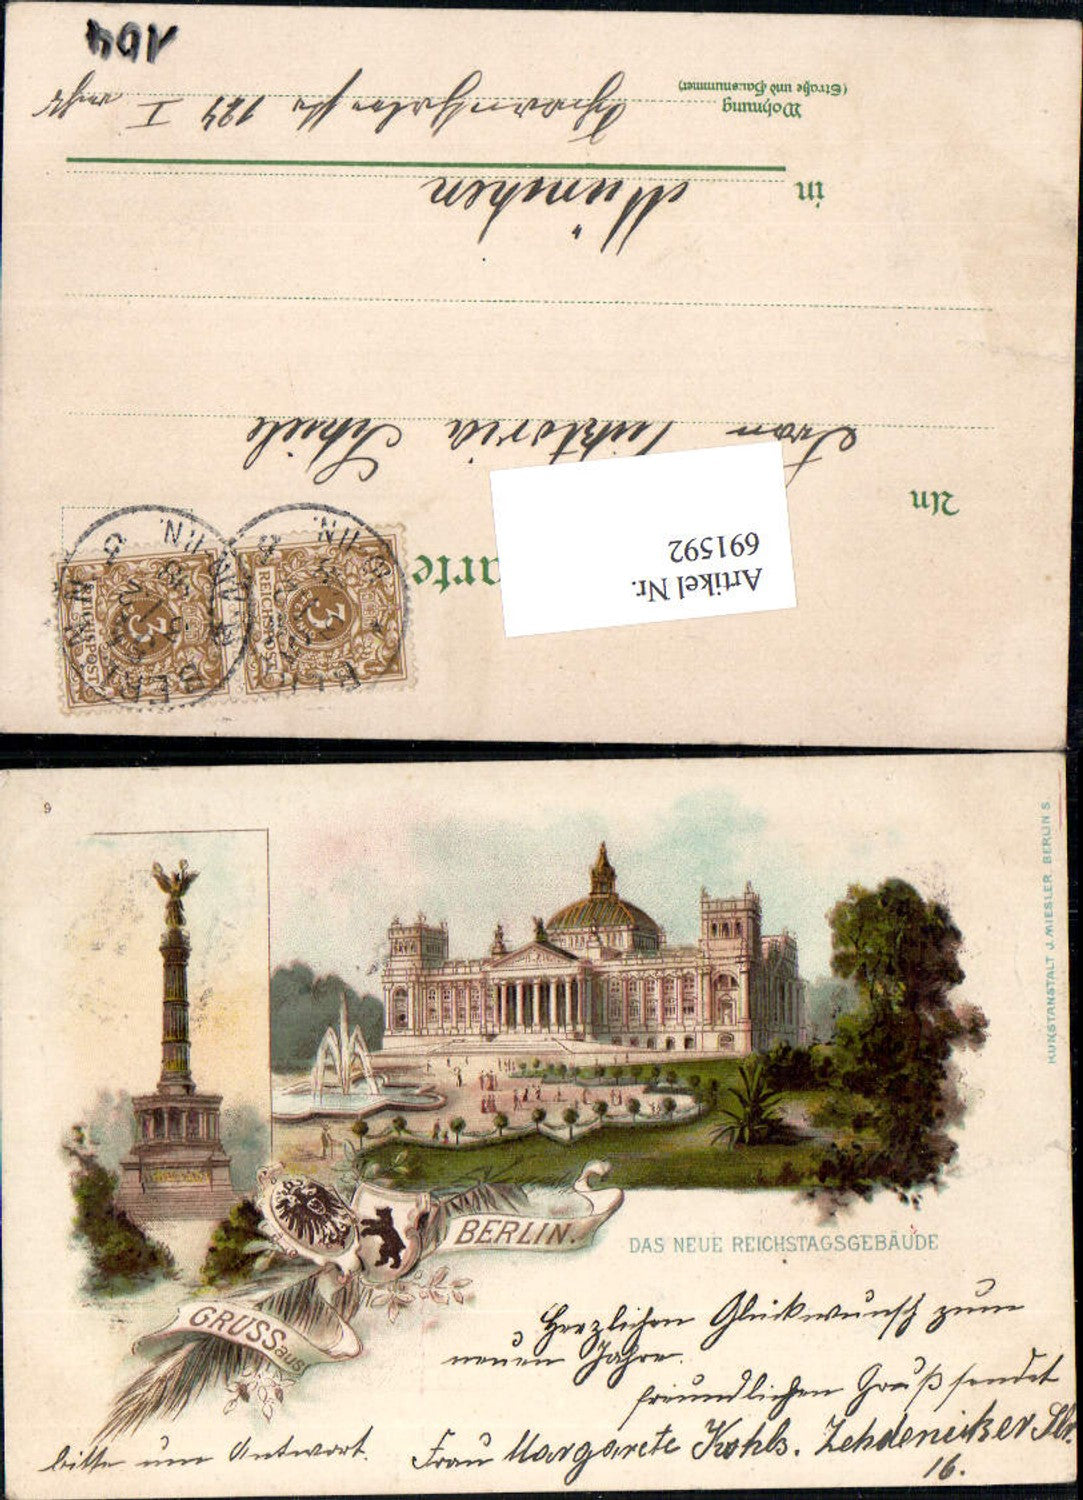 194
Wohnung
(Straße und Hausnummer)
124 I
in München
An Frau Viktoria
arte
Artikel Nr.
691592
3
REICHSPOST
3
REICHSPOST
BERLIN, N.
9
KUNSTANSTALT J. MIESLER BERLIN S.
BERLIN.
DAS NEUE REICHSTAGSGEBÄUDE
GRUSS aus
Herzlichen Glückwunsch zum
neuen Jahre.
freundlichen Gruß sendet
bitte um Antwort. Frau Margarete Kohls. Zehdenicker Str.
16.